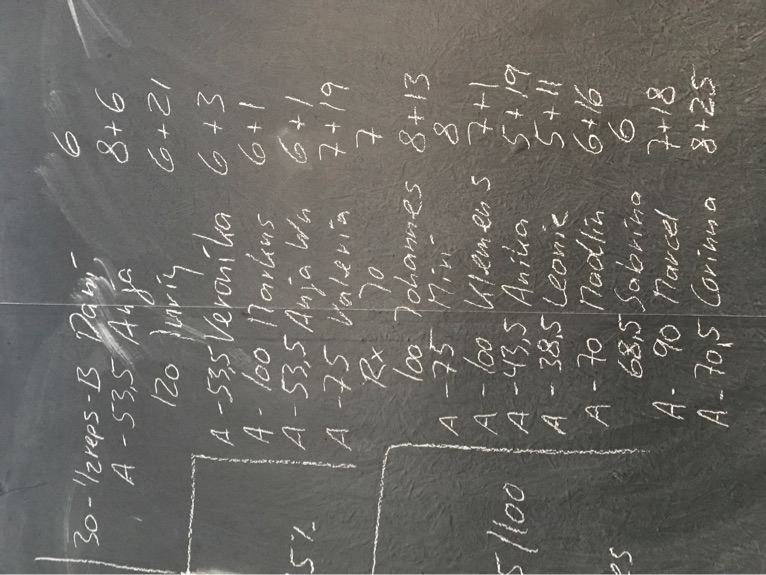 30-1/2reps-B Dani 6
A -53,5 Anja 8+6
120 Juriy 6+21
A -53,5 Veronika 6+3
A- 100 Markus 6+1
A -53,5 Anja Wn 6+1
A -75 Valeria 7+19
Rx Jo 7
100 Johannes 8+13
A -75 Miri 8
A -100 Klemens 7+1
A -43,5 Anika 5+19
A -38,5 Leonie 5+11
A -70 Madlin 6+16
68,5 Sabrina 6
A- 90 Marcel 7+18
A- 70,5 Corinna 8+25
5%
5/100
es